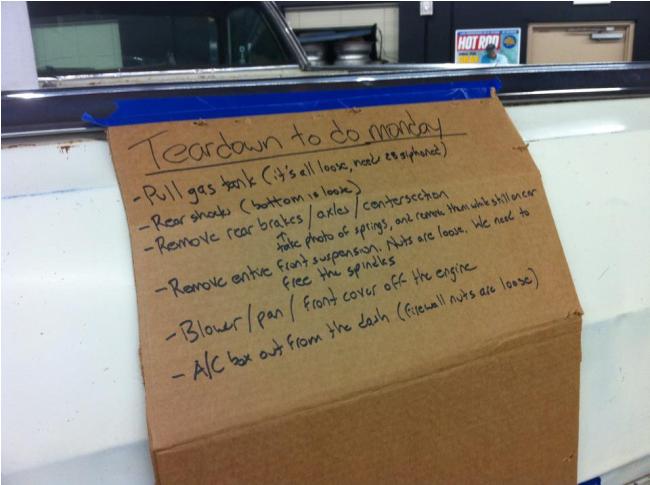 HOT ROD
Teardown to do monday
- Pull gas tank (it's all loose, need es siphoned)
- Rear shocks (bottom is loose)
- Remove rear brakes / axles / centersection
take photo of springs, and remove them while still on car
- Remove entire front suspension. Nuts are loose. We need to
free the spindles
- Blower / pan / front cover off the engine
- A/C box out from the dash (firewall nuts are loose)